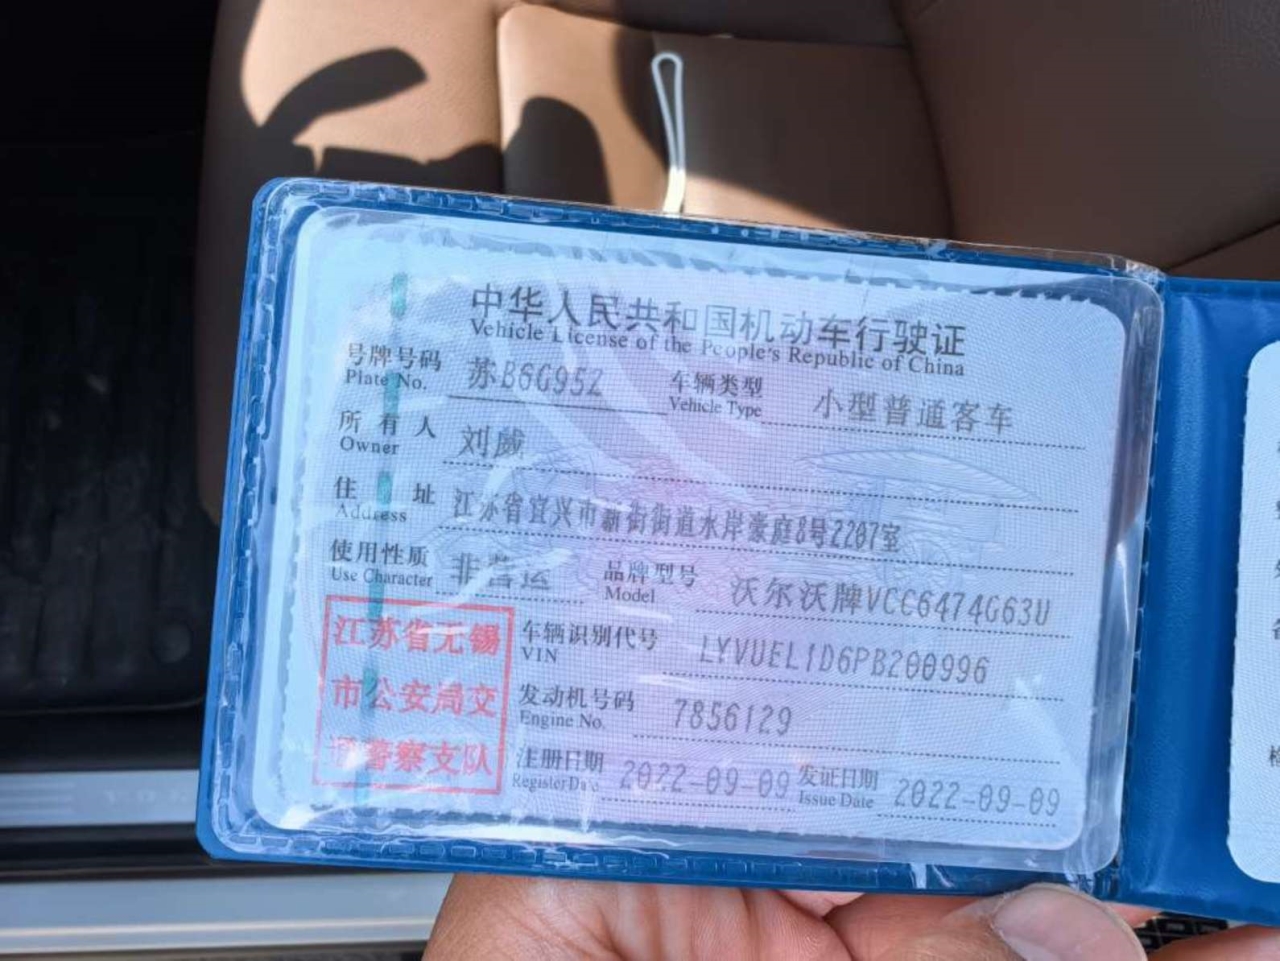 中华人民共和国机动车行驶证
Vehicle License of the People's Republic of China
号牌号码 苏B6G95Z 车辆类型 小型普通客车
Plate No. Vehicle Type
所有人 刘威
Owner
住址 江苏省宜兴市新街街道水岸豪庭8号2207室
Address
使用性质 非营运 品牌型号 沃尔沃牌VCC6474G63U
Use Character Model
车辆识别代号 LYVUEL1D6PB200996
VIN
发动机号码 7856129
Engine No.
注册日期 2022-09-09 发证日期 2022-09-09
Register Date Issue Date
江苏省无锡
市公安局交
通警察支队